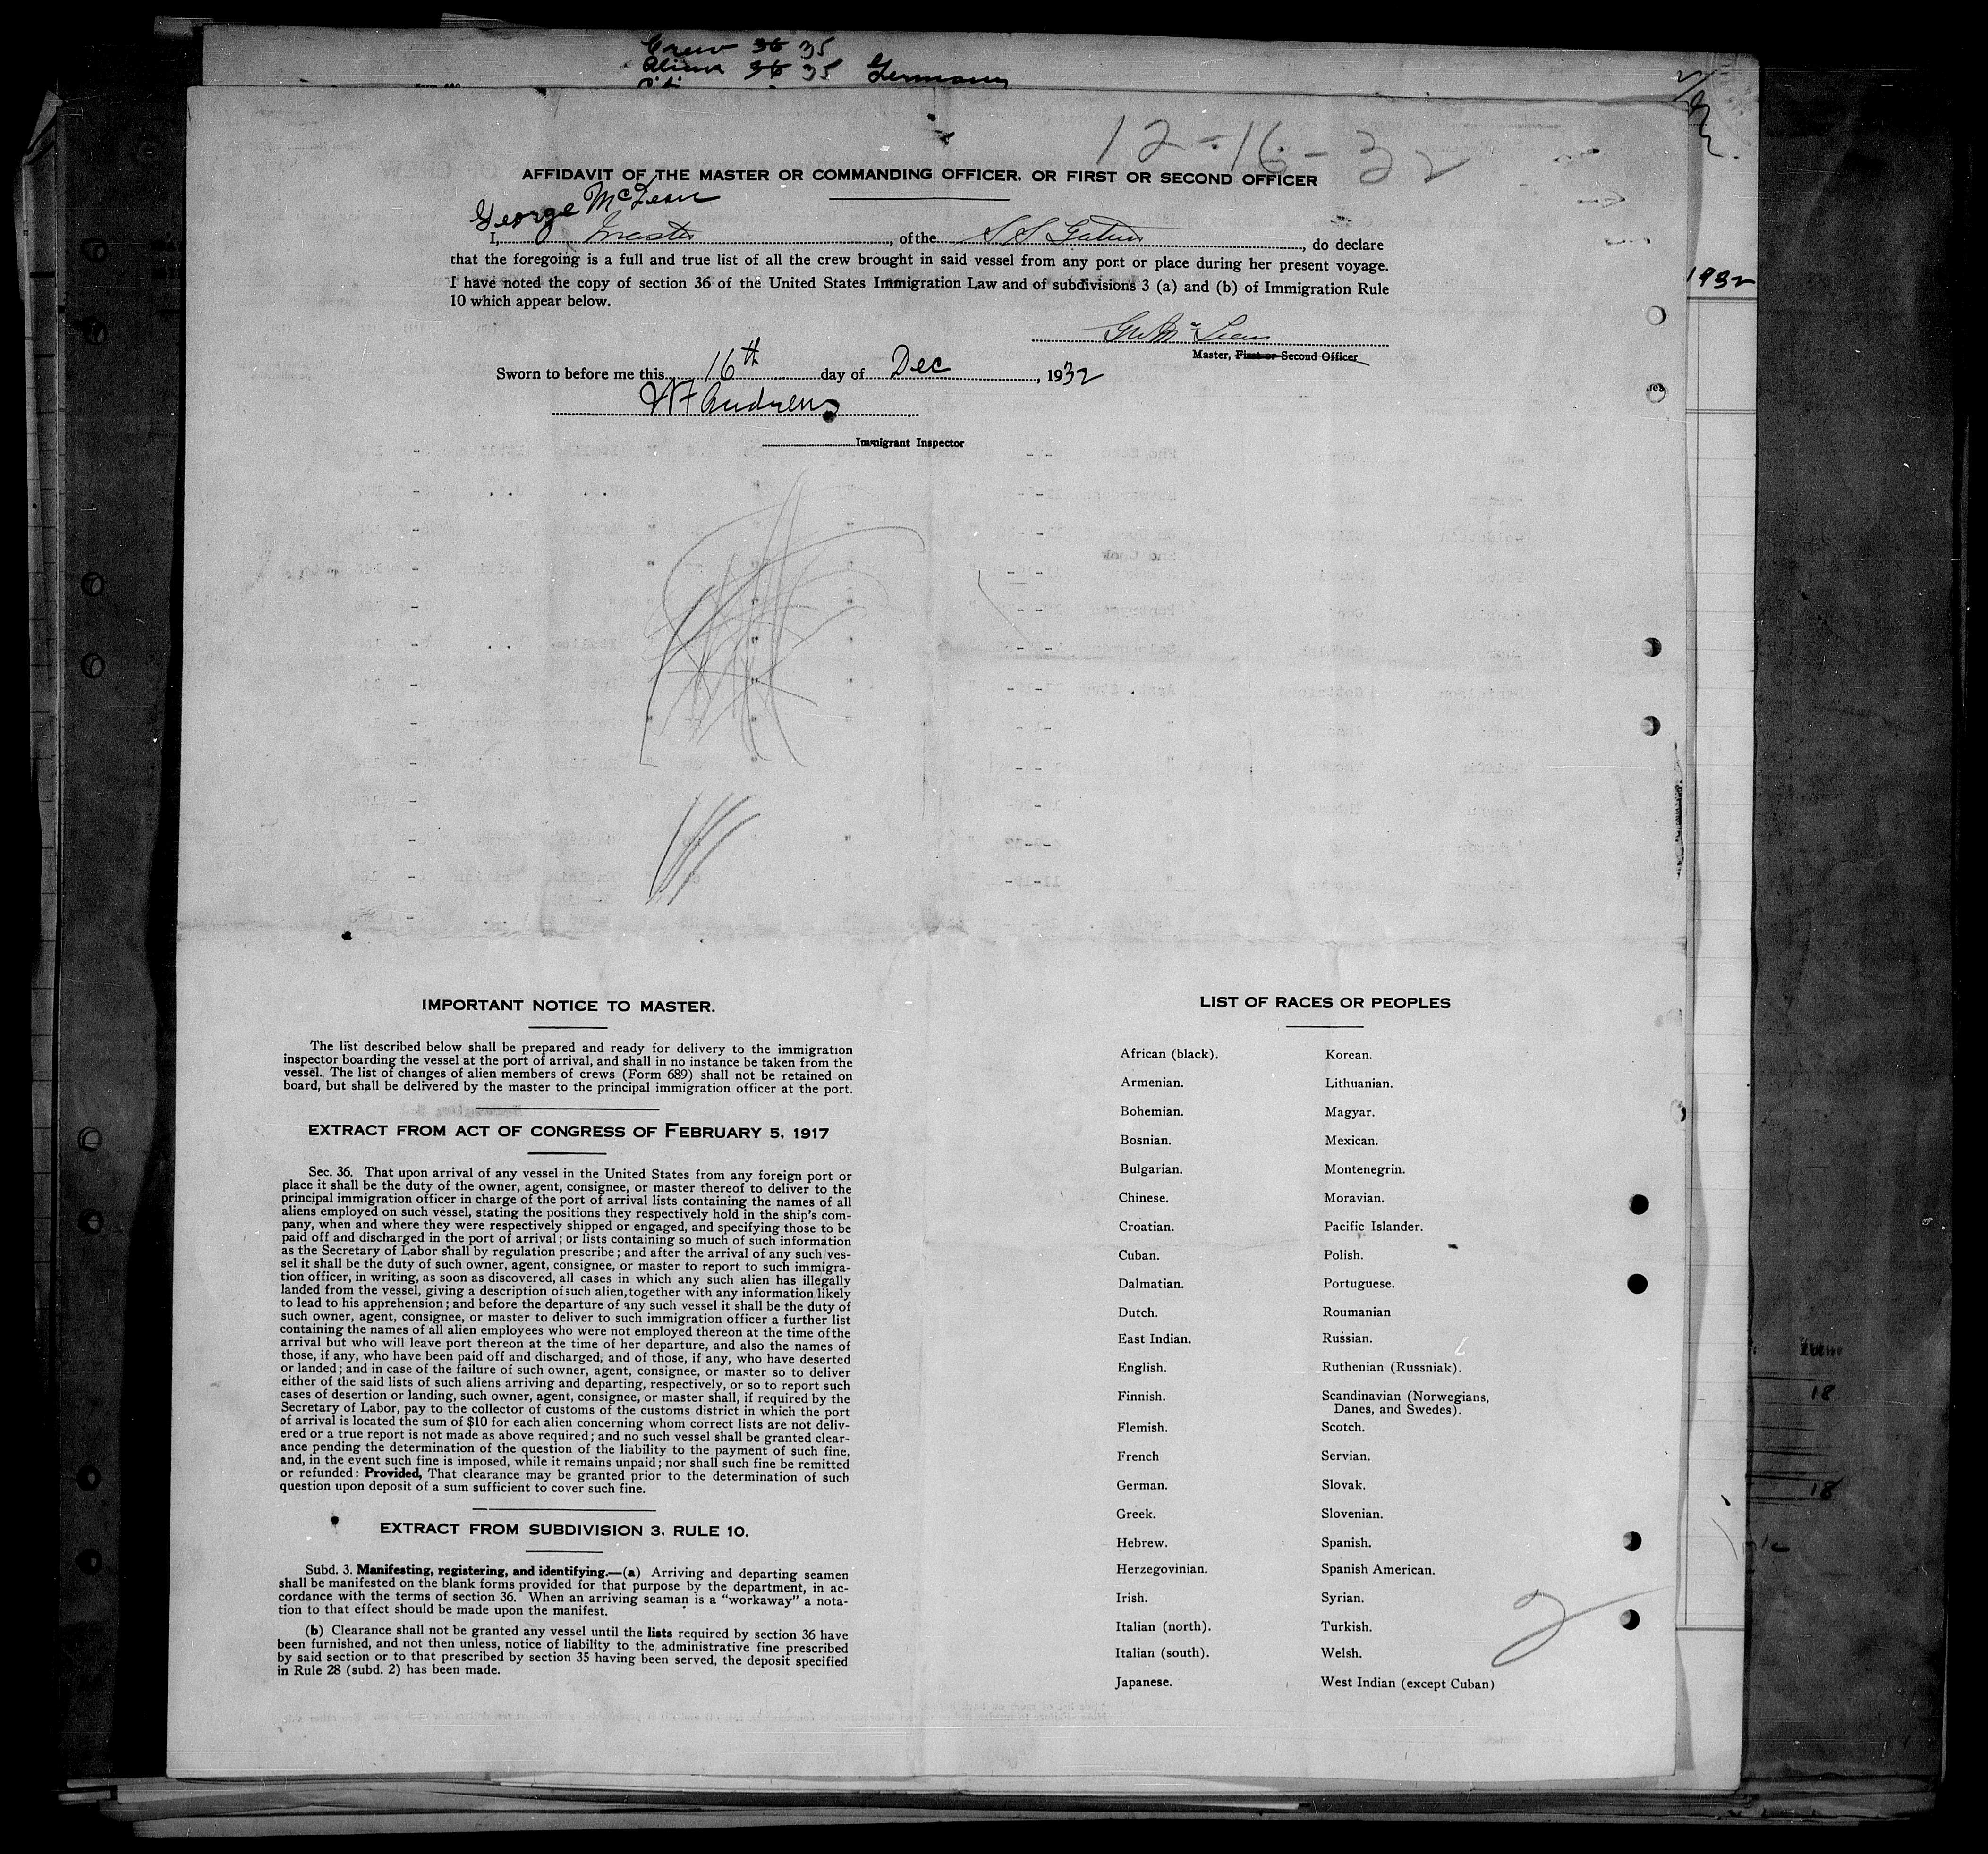 Crew 36 35
Aliens 36 35 Germany
12-16-32
AFFIDAVIT OF THE MASTER OR COMMANDING OFFICER, OR FIRST OR SECOND OFFICER
George McLean
I, Master, of the S S Gatun, do declare
that the foregoing is a full and true list of all the crew brought in said vessel from any port or place during her present voyage.
I have noted the copy of section 36 of the United States Immigration Law and of subdivisions 3 (a) and (b) of Immigration Rule
10 which appear below.
1932
Geo McLean
Master, First or Second Officer
Sworn to before me this 16th day of Dec, 1932
Andrews
Immigrant Inspector
IMPORTANT NOTICE TO MASTER.
The list described below shall be prepared and ready for delivery to the immigration
inspector boarding the vessel at the port of arrival, and shall in no instance be taken from the
vessel. The list of changes of alien members of crews (Form 689) shall not be retained on
board, but shall be delivered by the master to the principal immigration officer at the port.
EXTRACT FROM ACT OF CONGRESS OF FEBRUARY 5, 1917
Sec. 36. That upon arrival of any vessel in the United States from any foreign port or
place it shall be the duty of the owner, agent, consignee, or master thereof to deliver to the
principal immigration officer in charge of the port of arrival lists containing the names of all
aliens employed on such vessel, stating the positions they respectively hold in the ship's com-
pany, when and where they were respectively shipped or engaged, and specifying those to be
paid off and discharged in the port of arrival; or lists containing so much of such information
as the Secretary of Labor shall by regulation prescribe; and after the arrival of any such ves-
sel it shall be the duty of such owner, agent, consignee, or master to report to such immigra-
tion officer, in writing, as soon as discovered, all cases in which any such alien has illegally
landed from the vessel, giving a description of such alien, together with any information likely
to lead to his apprehension; and before the departure of any such vessel it shall be the duty of
such owner, agent, consignee, or master to deliver to such immigration officer a further list
containing the names of all alien employees who were not employed thereon at the time of the
arrival but who will leave port thereon at the time of her departure, and also the names of
those, if any, who have been paid off and discharged, and of those, if any, who have deserted
or landed; and in case of the failure of such owner, agent, consignee, or master so to deliver
either of the said lists of such aliens arriving and departing, respectively, or so to report such
cases of desertion or landing, such owner, agent, consignee, or master shall, if required by the
Secretary of Labor, pay to the collector of customs of the customs district in which the port
of arrival is located the sum of $10 for each alien concerning whom correct lists are not deliv-
ered or a true report is not made as above required; and no such vessel shall be granted clear-
ance pending the determination of the question of the liability to the payment of such fine,
and, in the event such fine is imposed, while it remains unpaid; nor shall such fine be remitted
or refunded: Provided, That clearance may be granted prior to the determination of such
question upon deposit of a sum sufficient to cover such fine.
EXTRACT FROM SUBDIVISION 3, RULE 10.
Subd. 3. Manifesting, registering, and identifying.—(a) Arriving and departing seamen
shall be manifested on the blank forms provided for that purpose by the department, in ac-
cordance with the terms of section 36. When an arriving seaman is a "workaway" a nota-
tion to that effect should be made upon the manifest.
(b) Clearance shall not be granted any vessel until the lists required by section 36 have
been furnished, and not then unless, notice of liability to the administrative fine prescribed
by said section or to that prescribed by section 35 having been served, the deposit specified
in Rule 28 (subd. 2) has been made.
LIST OF RACES OR PEOPLES
African (black). Korean.
Armenian. Lithuanian.
Bohemian. Magyar.
Bosnian. Mexican.
Bulgarian. Montenegrin.
Chinese. Moravian.
Croatian. Pacific Islander.
Cuban. Polish.
Dalmatian. Portuguese.
Dutch. Roumanian
East Indian. Russian.
English. Ruthenian (Russniak).
Finnish. Scandinavian (Norwegians,
Danes, and Swedes).
Flemish. Scotch.
French Servian.
German. Slovak.
Greek. Slovenian.
Hebrew. Spanish.
Herzegovinian. Spanish American.
Irish. Syrian.
Italian (north). Turkish.
Italian (south). Welsh.
Japanese. West Indian (except Cuban)
2
18
18